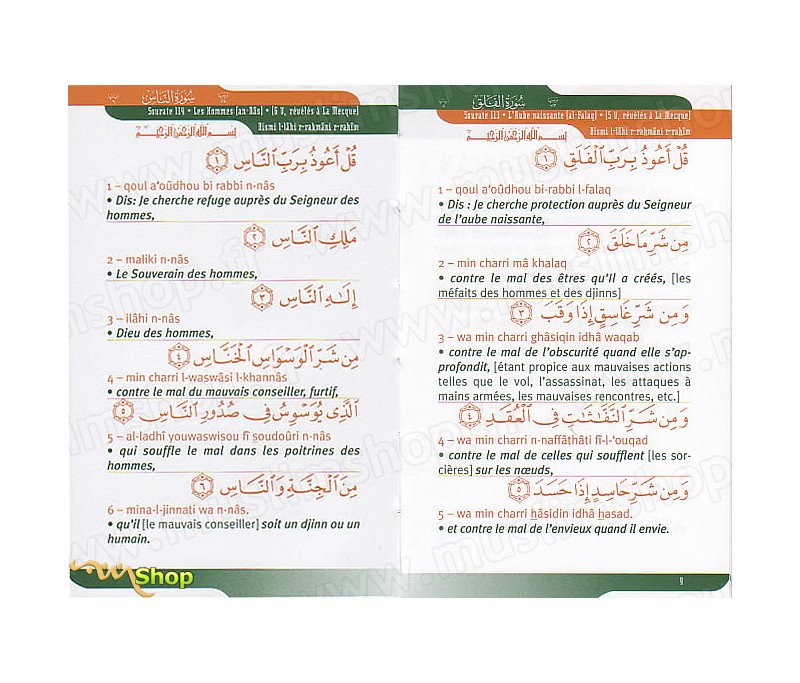 سورة الناس
Sourate 114 • Les Hommes (an-Nâs) • (6 V, révélés à La Mecque)
بسم الله الرحمن الرحيم
Bismi l-lâhi r-rahmâni r-rahîm
قُلْ أَعُوذُ بِرَبِّ ٱلنَّاسِ ١
1 – qoul a‘oûdhou bi rabbi n-nâs
• Dis: Je cherche refuge auprès du Seigneur des
hommes,
مَلِكِ ٱلنَّاسِ ٢
2 – maliki n-nâs
• Le Souverain des hommes,
إِلَٰهِ ٱلنَّاسِ ٣
3 – ilâhi n-nâs
• Dieu des hommes,
مِن شَرِّ ٱلْوَسْوَاسِ ٱلْخَنَّاسِ ٤
4 – min charri l-waswâsi l-khannâs
• contre le mal du mauvais conseiller, furtif,
ٱلَّذِى يُوَسْوِسُ فِى صُدُورِ ٱلنَّاسِ ٥
5 – al-ladhî youwaswisou fî soudoûri n-nâs
• qui souffle le mal dans les poitrines des
hommes,
مِنَ ٱلْجِنَّةِ وَٱلنَّاسِ ٦
6 – mina-l-jinnati wa n-nâs.
• qu’il [le mauvais conseiller] soit un djinn ou un
humain.
Shop
سورة الفلق
Sourate 113 • L'Aube naissante (al-Falaq) • (5 V, révélés à La Mecque)
بسم الله الرحمن الرحيم
Bismi l-lâhi r-rahmâni r-rahîm
قُلْ أَعُوذُ بِرَبِّ ٱلْفَلَقِ ١
1 – qoul a‘oûdhou bi-rabbi l-falaq
• Dis : Je cherche protection auprès du Seigneur
de l’aube naissante,
مِن شَرِّ مَا خَلَقَ ٢
2 – min charri mâ khalaq
• contre le mal des êtres qu’Il a créés, [les
méfaits des hommes et des djinns]
وَمِن شَرِّ غَاسِقٍ إِذَا وَقَبَ ٣
3 – wa min charri ghâsiqin idhâ waqab
• contre le mal de l’obscurité quand elle s’ap-
profondit, [étant propice aux mauvaises actions
telles que le vol, l’assassinat, les attaques à
mains armées, les mauvaises rencontres, etc.]
وَمِن شَرِّ ٱلنَّفَّٰثَٰتِ فِى ٱلْعُقَدِ ٤
4 – wa min charri n-naffâthâti fî-l-‘ouqad
• contre le mal de celles qui soufflent [les sor-
cières] sur les nœuds,
وَمِن شَرِّ حَاسِدٍ إِذَا حَسَدَ ٥
5 – wa min charri hâsidin idhâ hasad.
• et contre le mal de l’envieux quand il envie.
9
www.muslimshop.fr